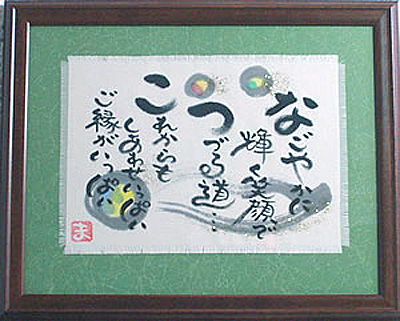 なごやかに
輝く笑顔で
つづる道…
これからも
しあわせいっぱい
ご縁がいっぱい